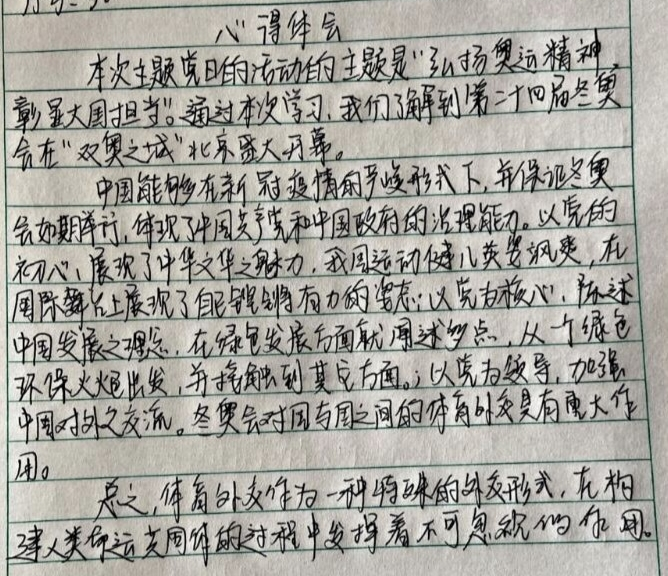 心得体会
本次主题党日的活动的主题是"弘扬奥运精神
彰显大国担当"。通过本次学习,我们了解到第二十四届冬奥
会在"双奥之城"北京盛大开幕。
中国能够在新冠疫情的严峻形式下,并保证冬奥
会如期举行,体现了中国共产党和中国政府的治理能力。以党的
初心,展现了中华文化之魅力,我国运动健儿英姿飒爽,在
国际舞台上展现了自己铿锵有力的姿态;以党为核心,陈述
中国发展之理念,在绿色发展方面就阐述多点,从一个绿色
环保火炬出发,并接触到其它方面。;以党为领导,加强
中国对外之交流。冬奥会对国与国之间的体育外交具有重大作
用。
总之,体育外交作为一种特殊的外交形式,在构
建人类命运共同体的过程中发挥着不可忽视的作用。